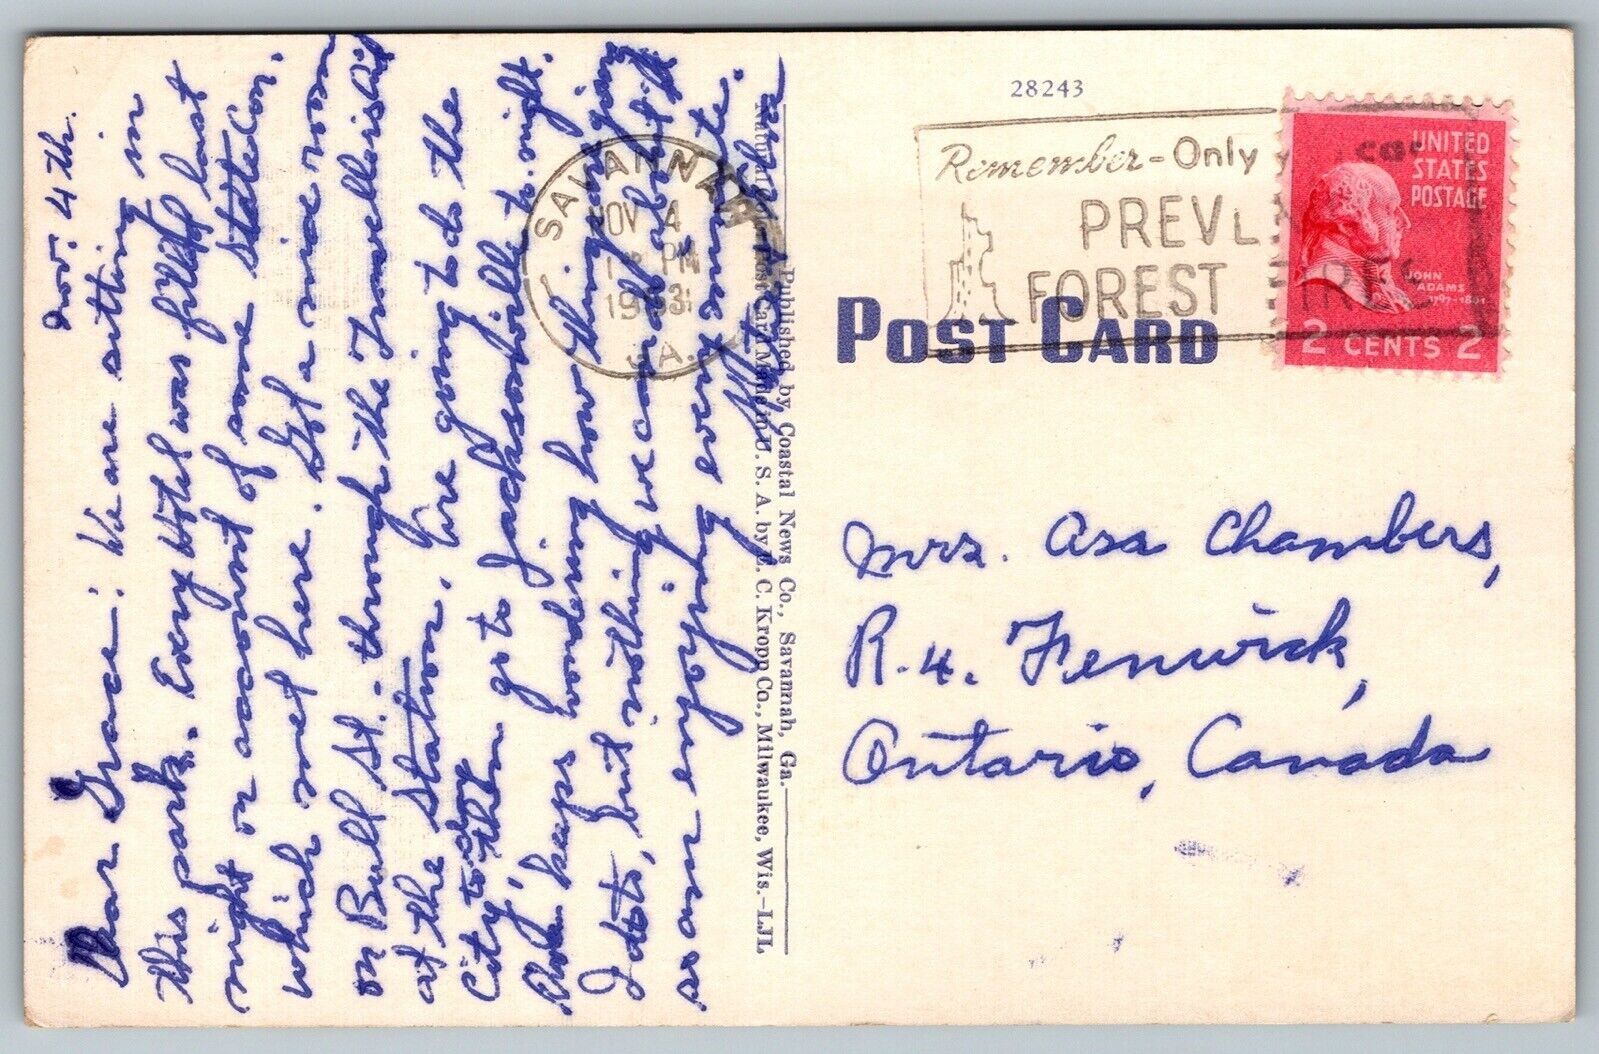 Nov. 4th.
Dear Grace: We are sitting in
this park. Every Hotel was filled last
night on account of some state Con.
which met here. Got a nice room
on Bull St. through the Travellers Aid
at the Station. We going to do the
City to-day, then go to Jacksonville to-night.
keeps wondering how things going
but nothing we can do about it
so am enjoying every minute.
Published by Coastal News Co., Savannah, Ga.
Post Card Made in U. S. A. by E. C. Kropp Co., Milwaukee, Wis.—LJL
28243
SAVANNAH
NOV 4
PM
1953
GA.
Remember - Only
PREVE
FOREST FIRES
UNITED
STATES
POSTAGE
JOHN
ADAMS
1797-1801
2 CENTS 2
POST CARD
Mrs. Asa Chambers,
R.4. Fenwick,
Ontario, Canada